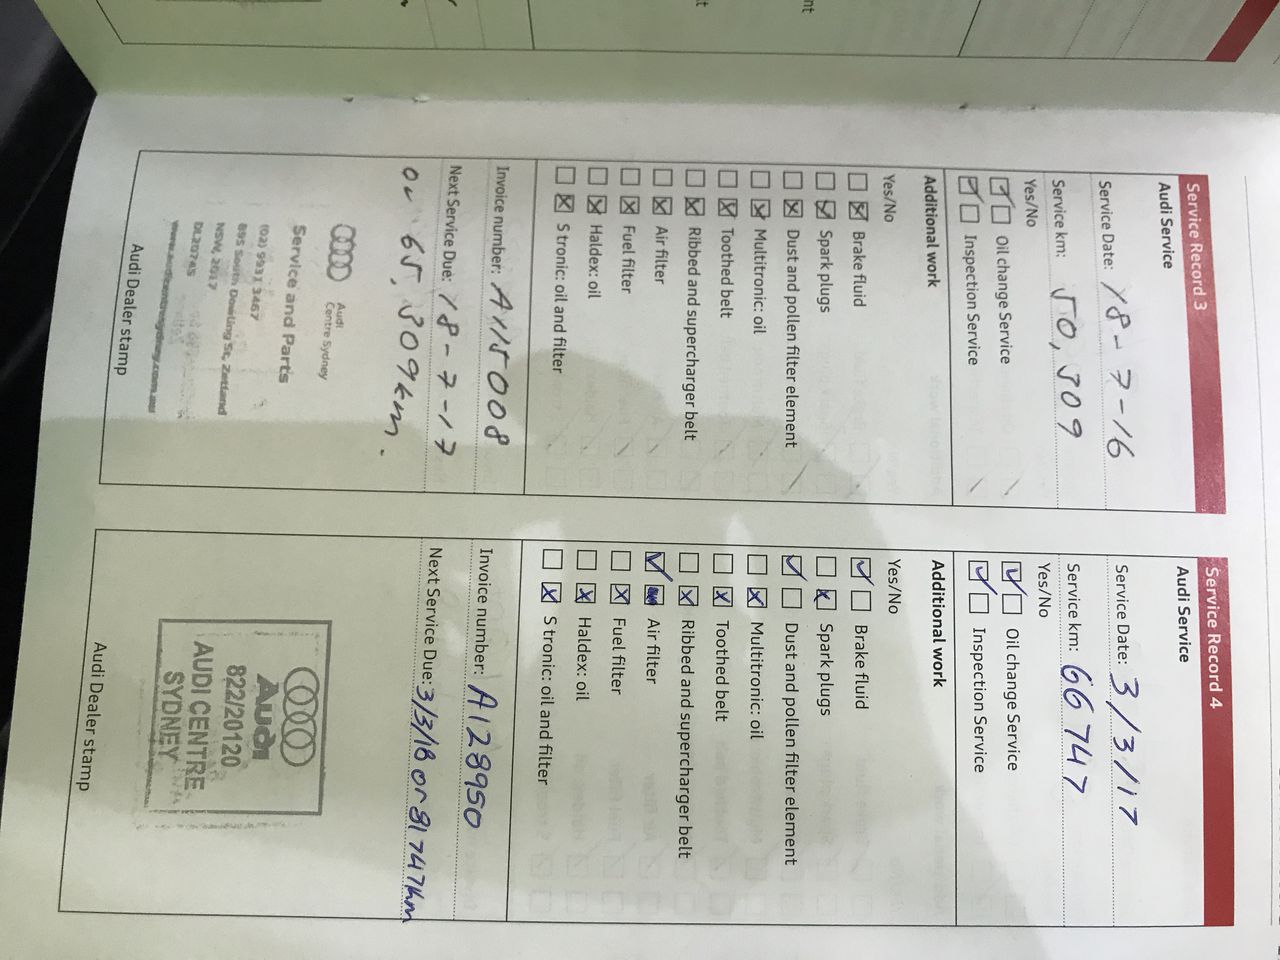 Service Record 3
Audi Service
Service Date: 18-7-16
Service km: 50,309
Yes/No
Oil change Service
Inspection Service
Additional work
Yes/No
Brake fluid
Spark plugs
Dust and pollen filter element
Multitronic: oil
Toothed belt
Ribbed and supercharger belt
Air filter
Fuel filter
Haldex: oil
S tronic: oil and filter
Invoice number: A115008
Next Service Due: 18-7-17
or 65,309km.
Audi
Centre Sydney
Service and Parts
(02) 9931 3467
895 South Dowling St, Zetland
NSW, 2017
DL20745
www.audicentresydney.com.au
Audi Dealer stamp
Service Record 4
Audi Service
Service Date: 3/3/17
Service km: 66747
Yes/No
Oil change Service
Inspection Service
Additional work
Yes/No
Brake fluid
Spark plugs
Dust and pollen filter element
Multitronic: oil
Toothed belt
Ribbed and supercharger belt
Air filter
Fuel filter
Haldex: oil
S tronic: oil and filter
Invoice number: A128950
Next Service Due: 3/3/18 or 81747km
Audi
822/20120
AUDI CENTRE
SYDNEY
Audi Dealer stamp